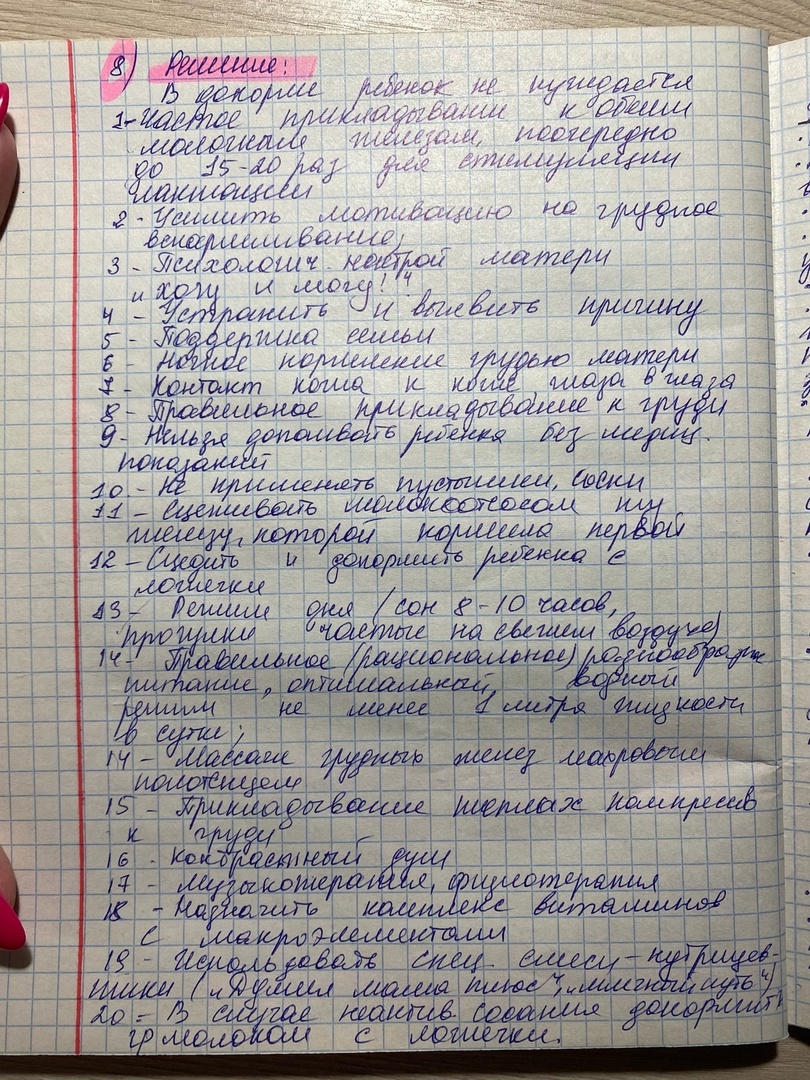 8) Решение:
В докорме ребенок не нуждается
1- Частое прикладывании к обеим
молочным железам, поочередно
до 15-20 раз для стимуляции
лактации
2 - Усилить мотивацию на грудное
вскармливание;
3 - Психологич. настрой матери
"хочу и могу!"
4 - Устранить и выявить причину
5 - Поддержка семьи
6 - Ночное кормление грудью матери
7 - Контакт кожа к коже, глаза в глаза
8 - Правильное прикладывание к груди
9 - Нельзя допаивать ребенка без медиц.
показаний
10 - Не применять пустышки, соски
11 - Сцеживать молокоотсосом ту
железу, которой кормила первой
12 - Сцедить и докормить ребенка с
ложечки
13 - Режим дня (сон 8-10 часов,
прогулки частые на свежем воздухе)
14 - Правильное (рациональное) разнообразн
питание, оптимальный водный
режим не менее 1 литра жидкости
в сутки;
14 - Массаж грудных желез махровым
полотенцем
15 - Прикладывание теплах компрессв
к груди
16 - Контрастный душ
17 - Музыкотерапия, физиотерапия
18 - Назначить комплекс витаминов
с макроэлементами
19 - Использовать спец. смеси - нутрицев-
тики („Думил мама плюс", „млечный путь")
20 - В случае неактив. сосания докормить
гр молоком с ложечки.